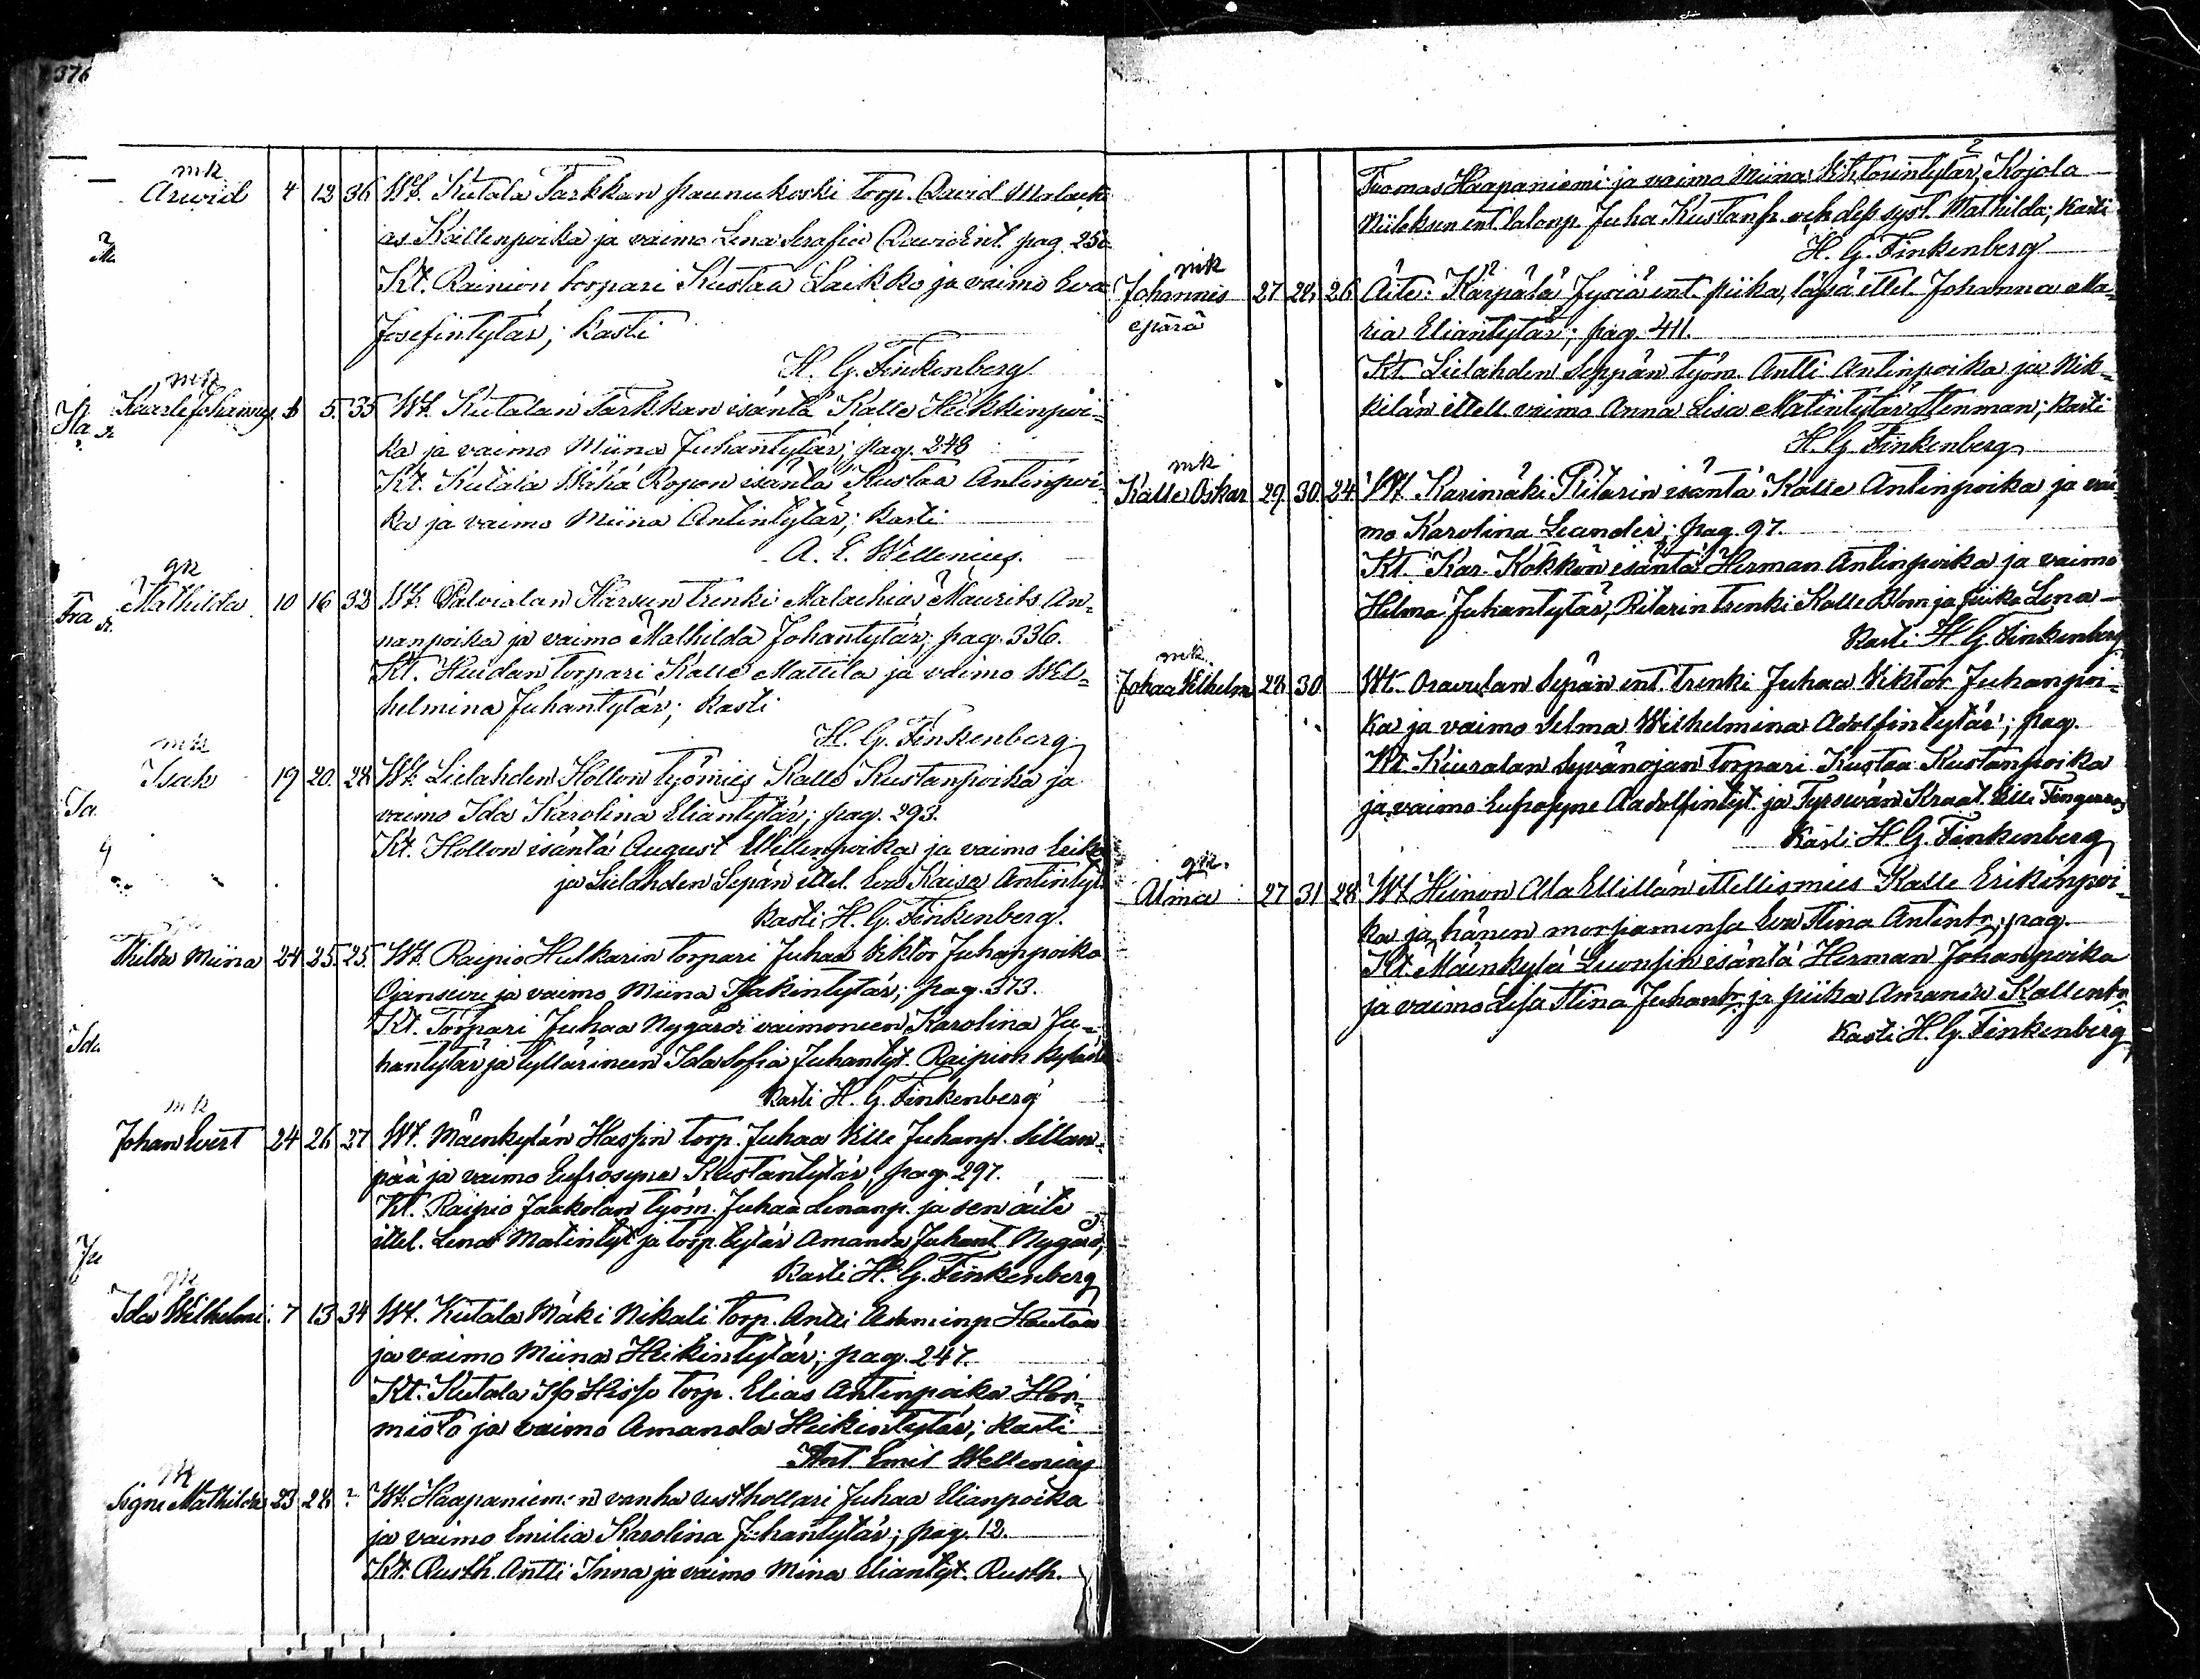 376
mk
Arwid 4 12 36 Wt. Kutala Tarkkan Paunukoski torp. David Malack
ias Kallenpoika ja vaimo Lena Serafia Davidint. pag. 250
Kt. Rainion torpari Kustaa Laikko ja vaimo Eva
Josefintytär; kasti
H. G. Finkenberg
mk
Kaarle Johannes 5. 35 Wt. Kutalan Tarkkan isäntä Kalle Heikkinpoi-
ka ja vaimo Miina Juhantytär; pag. 248
Kt. Kutala Wähä Ropon isäntä Kustaa Antinpoi-
ka ja vaimo Miina Antintytär; kasti
A. E. Wellenius.
gk
Mathilda 10 16 32 Wt. Palvialan Kärsun trenki Malachias Maurits An-
nanpoika ja vaimo Mathilda Johantytär; pag. 336.
Kt. Heidan torpari Kalle Mattila ja vaimo Wil-
helmina Juhantytär; kasti
H. G. Finkenberg
mk
Isak 19 20. 28 Wt. Lielahden Hollon työmies Kalle Kustanpoika ja
vaimo Ida Karolina Eliantytär; pag. 293.
Kt. Hollon isäntä August Willenpoika ja vaimo
ja Lielahden Sepän ittel. Eva Kaisa Antintyt.
kasti H. G. Finkenberg.
Hilda Miina 24 25. 25. Wt. Raipio Hulkarin torpari Juhaa Viktor Juhanpoika
Ojansuu ja vaimo Miina Isakintytär; pag. 373.
Kt. Torpari Juhaa Nygård vaimoneen Karolina Ju-
hantytär ja tyttärineen Ida Sofia Juhantyt. Raipion kylästä
kasti H. G. Finkenberg
mk
Johan Evert 24 26 27 Wt. Mäenkylän Hassin torp. Juhaa Ville Juhanp. Sillan-
pää ja vaimo Eufrosyne Kustantytär, pag. 297.
Kt. Raipio Jaakolan työm. Juhaa Lenanp. ja sen äiti
ittel. Lena Matintyt ja torp. tytär Amanda Juhant. Nygård,
kasti H. G. Finkenberg
gk
Ida Wilhelmi. 7 13 34 Wt. Kutala Mäki Nikali torp. Antti Adaminp Hautaa
ja vaimo Miina Heikintytär; pag. 247.
Kt. Kutala Iso Hisso torp. Elias Antinpoika Hor-
misto ja vaimo Amanda Heikintytär; kasti
Ant. Emil Wellenius
gk
Signe Mathilda 23 28 ? Wt. Haapaniemen vanha rusthollari Juhaa Elianpoika
ja vaimo Emilia Karolina Juhantytär; pag. 12.
Kt. Rusth. Antti Inna ja vaimo Mina Eliantyt. Rusth.
Tuomas Haapaniemi ja vaimo Miina Viktorintytär, Kojola
Niileksen ent. talonp. Juha Kustanp. och dess syst. Mathilda; kasti
H. G. Finkenberg
mk
Johannes 27 28, 26 Äiti: Kärpälä Jyriä ent. piika, läpsä ittel. Johanna Ma-
epärä
ria Eliantytär; pag. 411.
Kt. Lielahden Seppän työm. Antti Antinpoika ja Nik-
kilän ittell. vaimo Anna Lisa Matintytär Stenman; kasti
H. G. Finkenberg
mk
Kalle Oskar 29. 30. 24. Wt Karimäki Ritarin isäntä Kalle Antinpoika ja vai-
mo Karolina Leander; pag. 97.
Kt. Kar. Kokkon isäntä Herman Antinpoika ja vaimo
Helma Juhantytär, Ritarin trenki Kalle Blom ja piika Lena
kasti H. G. Finkenberg
mk.
Johaa Vilhelm 28 30 Wt. Oravulan Sepän ent. trenki Juhaa Viktor Juhanpoi-
ka ja vaimo Selma Wilhelmina Adolfintytär; pag.
Kt. Kiuralan Syvänojan torpari Kustaa Kustanpoika
ja vaimo Eufrosyne Aadolfintyt. ja Tyrswän Kraat. Ville Fingerroos
kasti H. G. Finkenberg
gk.
Alma 27 31 28 Wt Heinon Ala Ellilän ittellismies Kalle Erikinpoi-
ka ja hänen morsiamensa Eva Stina Antintr; pag.
Kt. Mäenkylä Suonsin isäntä Herman Johanpoika
ja vaimo Lisa Stina Juhantr. ja piika Amanda Kallentr.
kasti H. G. Finkenberg